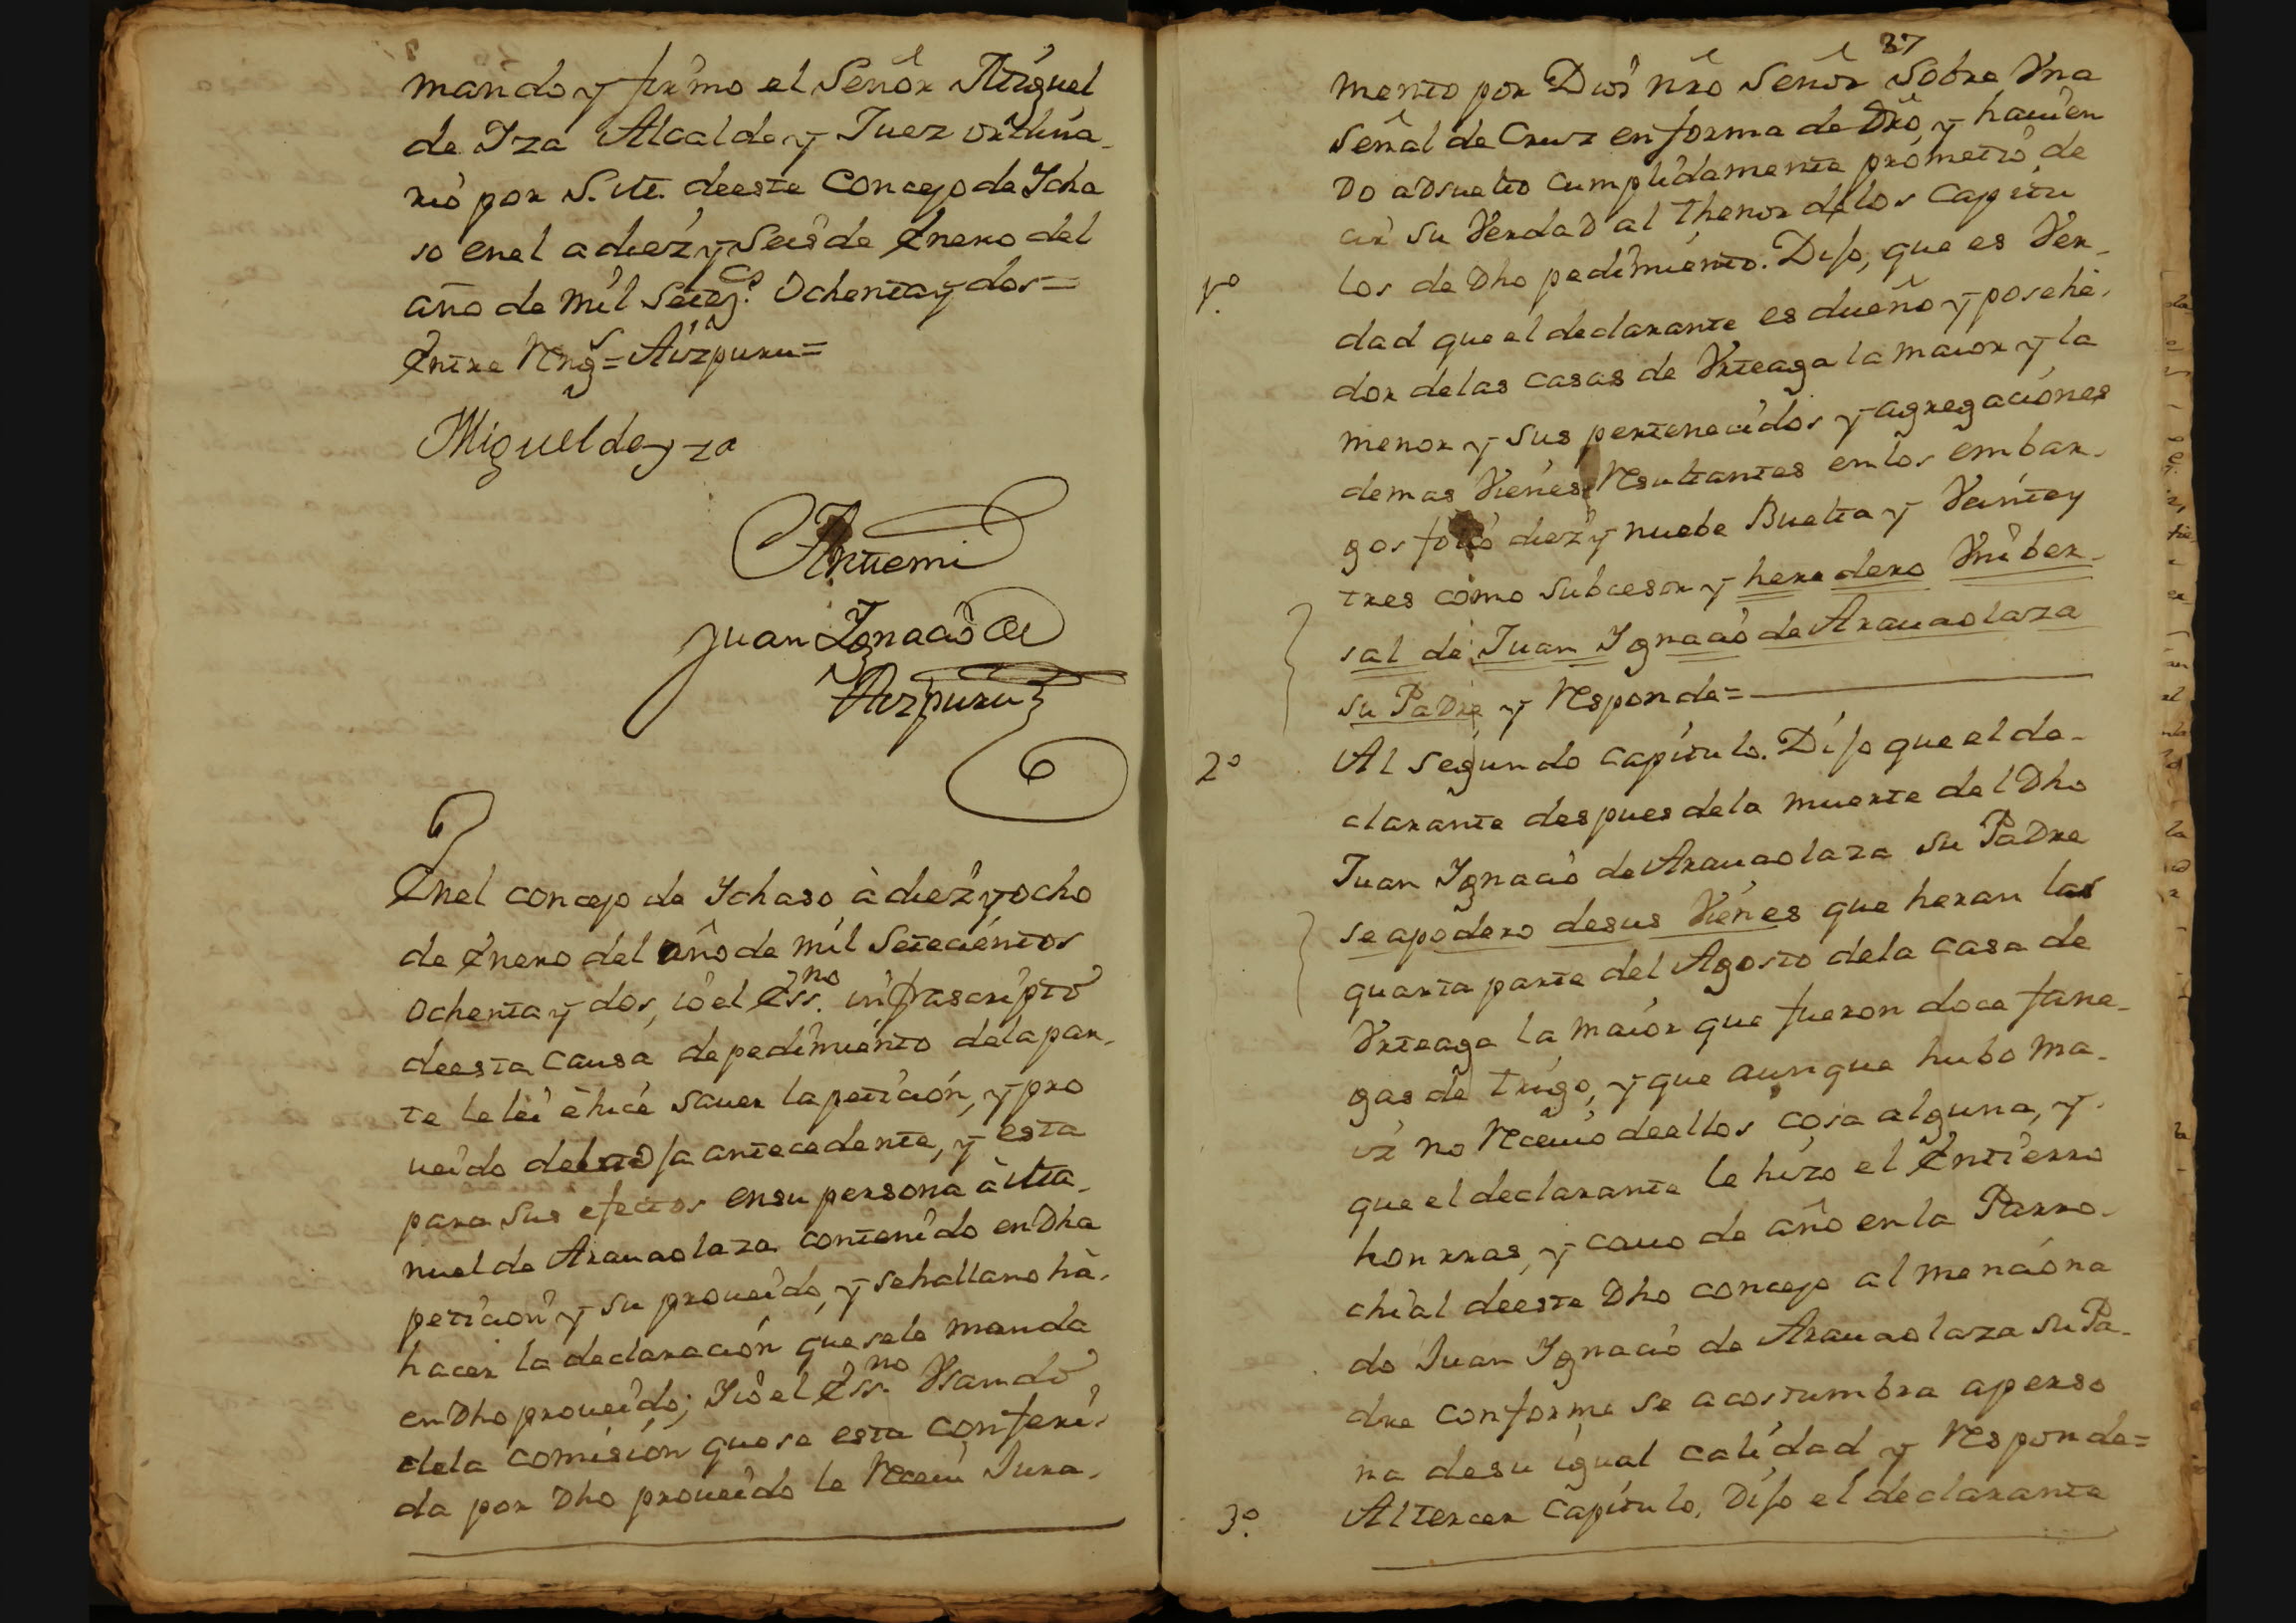 mando y firmo el Señor Miguel
de Yza Alcalde y Juez ordina-
rio por S. M. de este Concejo de Ycha
so en el a diez y seis de Enero del
año de mil setezs. ochenta y dos=
Entre Rengs= Aizpuru=
Miguel de yza
Antemi
Juan Ygnacio de
Aizpuru
En el concejo de Ychaso à diez y ocho
de Enero del año de mil setecientos
ochenta y dos, io el Essno. infrascripto
de esta causa de pedimiento de la par-
te le lei è hice sauer la peticion, y pro
ueido de la antecedente, y esta
para sus efectos en su persona à Ma-
nuel de Arauaolaza contenido en Dha
peticion y su proueido, y se hallano hà-
hacer la declaracion que se le manda
en Dho proueido; Yio el Essno. Vsando
de la comision que se esta conferi-
da por Dho proueido le Receui Jura-
37
mento por Dios nro Señor Sobre Vna
señal de Cruz en forma de Dro, y hauien
do absuelto cumplidamente prometio de
cir su Verdad al thenor de los Capitu
1º. los de Dho pedimiento. Dijo, que es Ver-
dad que el declarante es dueño y posehe-
dor de las casas de Vrteaga la maior y la
menor y sus pertenecidos y agregaciones
demas Vienes Resultantes en los embar-
gos folio diez y nuebe Buelta y Veinte y
tres como subcesor y heredero Vniber-
sal de Juan Ygnacio de Arauaolaza
su Padre y Responde=
2º Al segundo capitulo. Dijo que el de-
clarante despues de la muerte del Dho
Juan Ygnacio de Arauaolaza su Padre
se apodero de sus Vienes que heran las
quarta parte del Agosto de la casa de
Vrteaga la maior que fueron doce fane-
gas de trigo, y que aunque hubo ma-
iz no Receuio de ellos cosa alguna, y
que el declarante le hizo el Entierro
honrras, y cauo de año en la Parro-
chial de este Dho concejo al menciona
do Juan Ygnacio de Arauaolaza su Pa-
dre conforme se acostumbra a perso
na de su igual calidad y Responde=
3º. Al tercer capitulo, Dijo el declarante